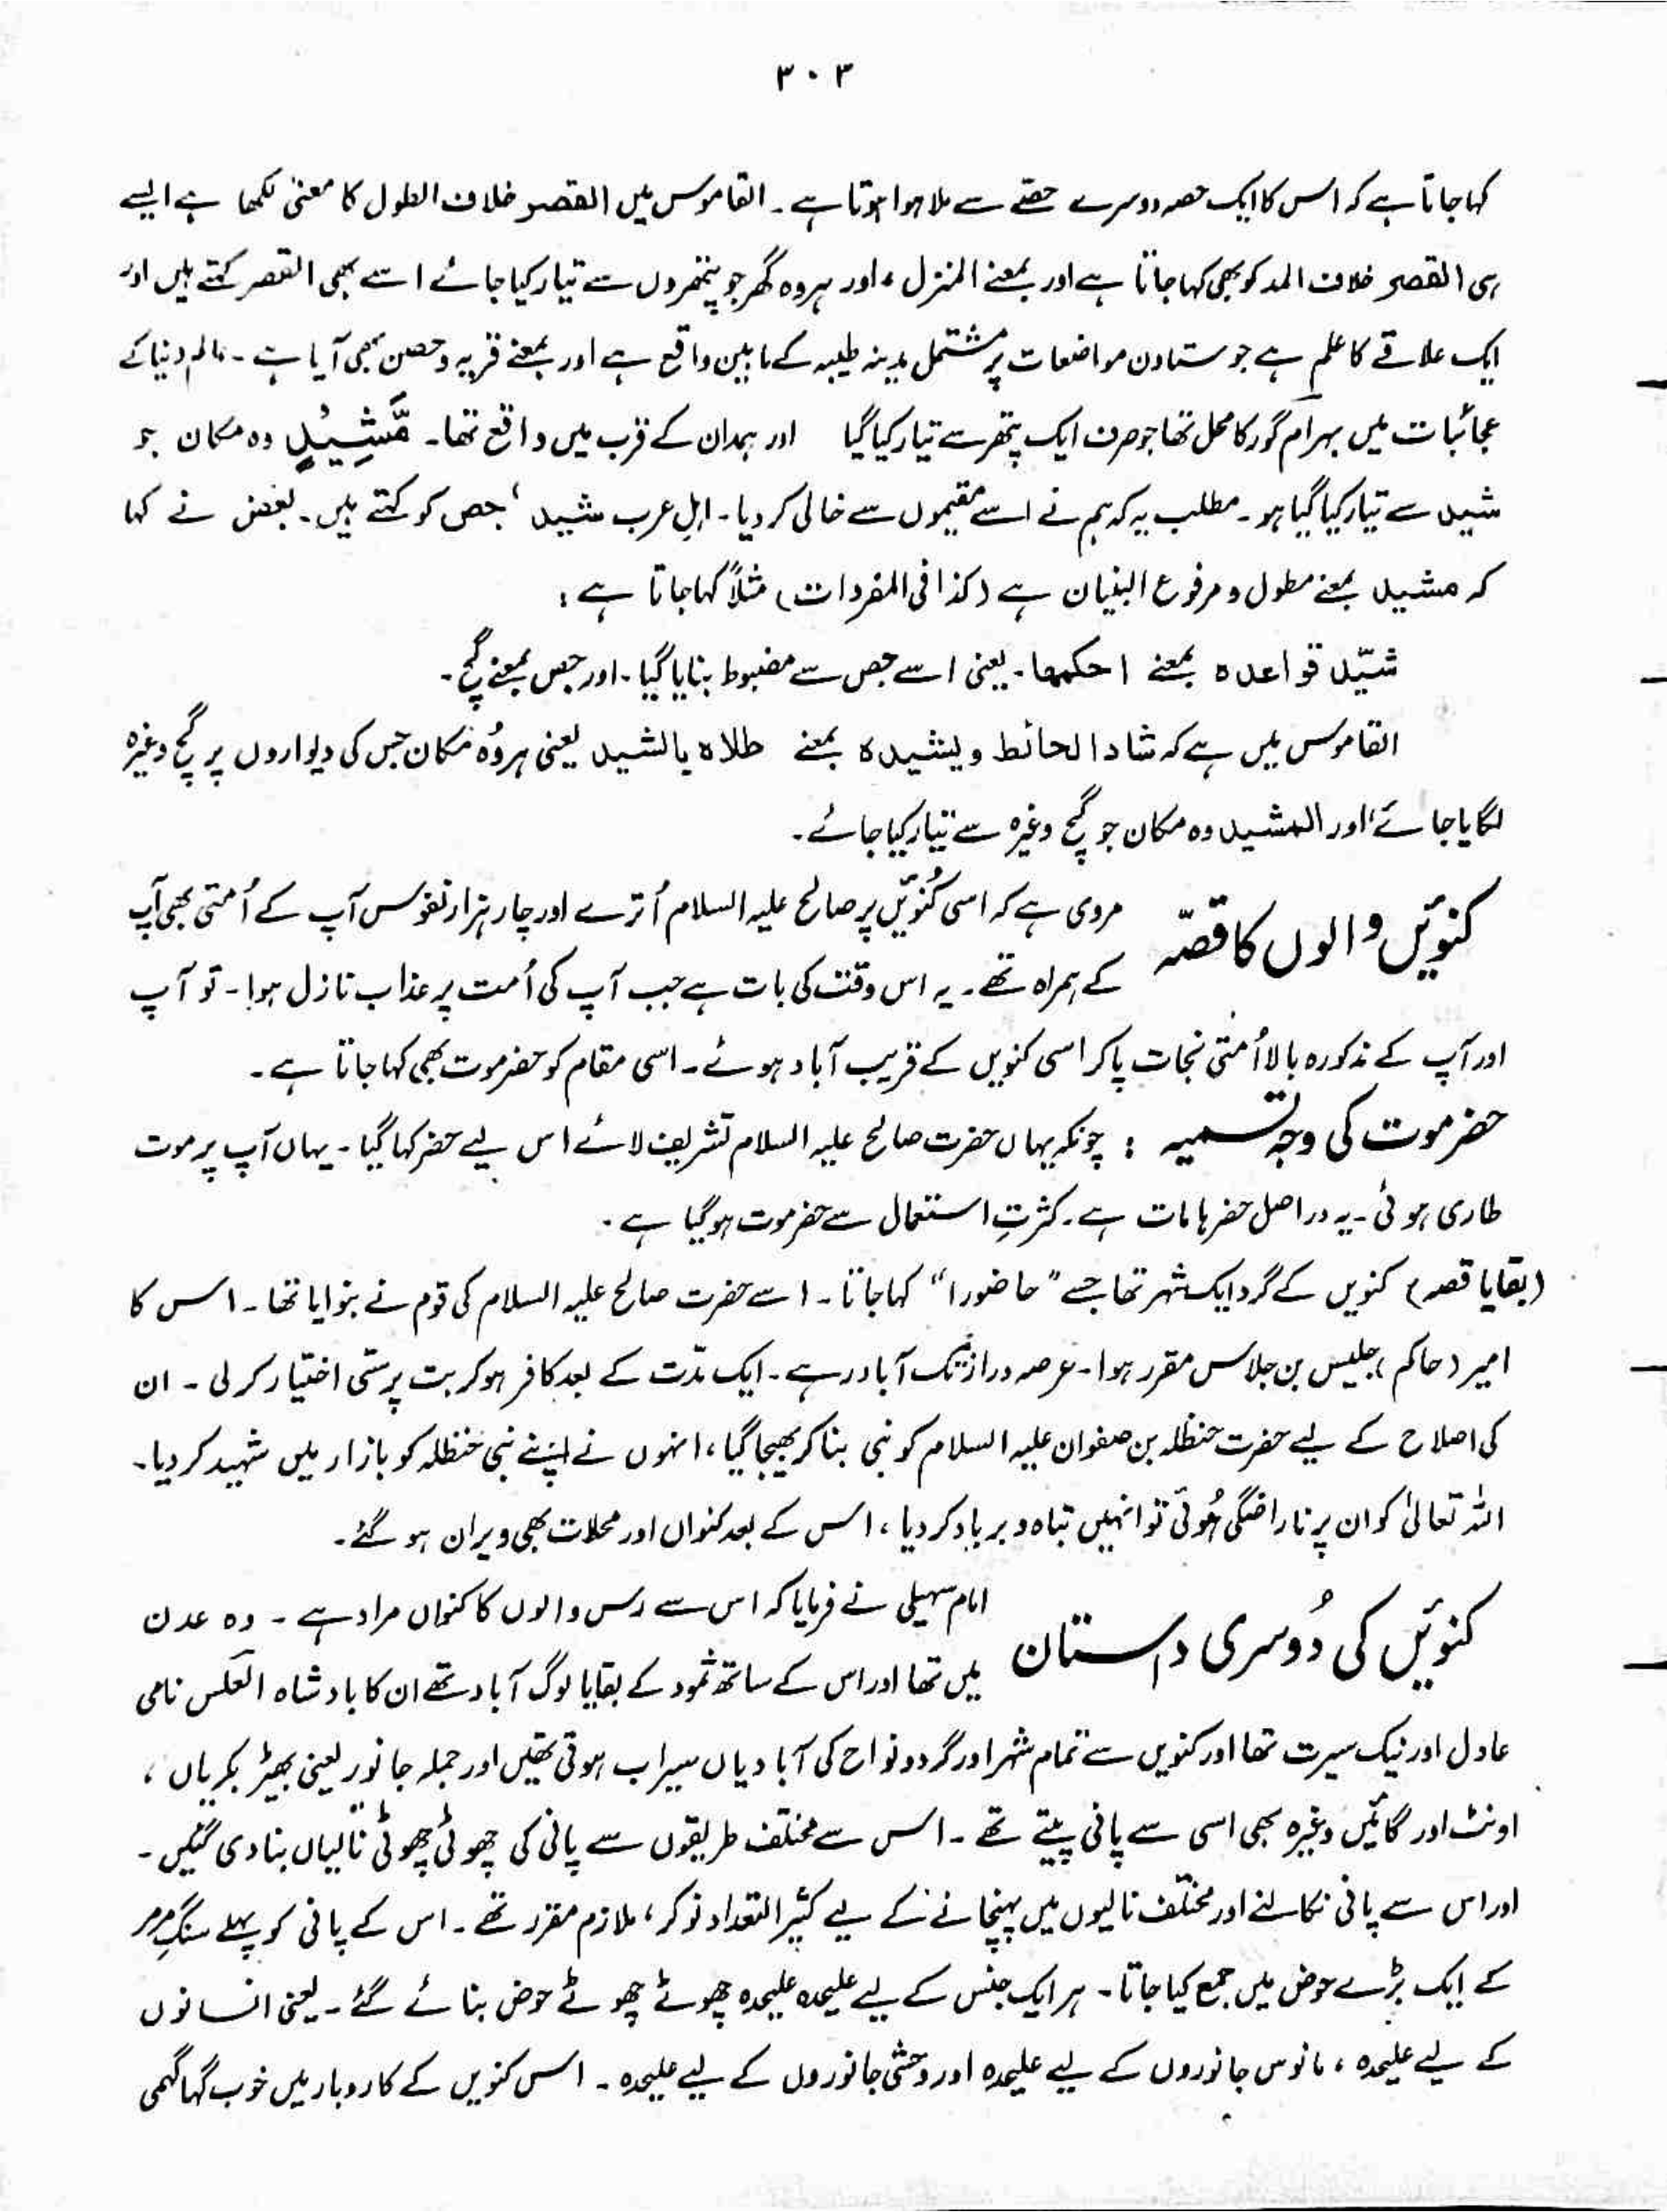 ۳۰۳
کہا جاتا ہے کہ اس کا ایک حصہ دوسرے حصّے سے ملا ہوا ہوتا ہے۔ القاموس میں القصر خلاف الطول کا معنیٰ لکھا ہے ایسے
ہی القصر خلاف المد کو بھی کہا جاتا ہے اور بمعنے المنزل ، اور ہر وہ گھر جو پتھروں سے تیار کیا جائے اسے بھی القصر کہتے ہیں اور
ایک علاقے کا علم ہے جو ستاون مواضعات پر مشتمل مدینہ طیبہ کے مابین واقع ہے اور بمعنے قریہ و حصن بھی آیا ہے۔ عالم دنیا کے
عجائبات میں بہرام گور کا محل تھا جو صرف ایک پتھر سے تیار کیا گیا اور ہمدان کے قرب میں واقع تھا۔ مَّشِیْدٍ وہ مکان جو
شید سے تیار کیا گیا ہو۔ مطلب یہ کہ ہم نے اسے مقیموں سے خالی کر دیا۔ اہلِ عرب شید ، جص کو کہتے ہیں۔ بعض نے کہا
کہ مشید بمعنے مطول و مرفوع البنیان ہے (کذا فی المفردات) مثلاً کہا جاتا ہے :
شیّد قواعدہ بمعنے احکمھا۔ یعنی اسے جص سے مضبوط بنایا گیا۔ اور جص بمعنے گچ۔
القاموس میں ہے کہ شاد الحائط ویشیدہ بمعنے طلاہ بالشید یعنی ہر وُہ مکان جس کی دیواروں پر گچ وغیرہ
لگایا جائے، اور المشید وہ مکان جو گچ وغیرہ سے تیار کیا جائے۔
کنوئیں والوں کا قصّہ مروی ہے کہ اسی کُنوئیں پر صالح علیہ السلام اُترے اور چار ہزار نفوس آپ کے اُمتی بھی آپ
کے ہمراہ تھے۔ یہ اس وقت کی بات ہے جب آپ کی اُمت پر عذاب نازل ہوا۔ تو آپ
اور آپ کے مذکورہ بالا اُمتی نجات پا کر اسی کنویں کے قریب آباد ہوئے۔ اسی مقام کو حضرموت بھی کہا جاتا ہے۔
حضرموت کی وجہ تسمیہ : چونکہ یہاں حضرت صالح علیہ السلام تشریف لائے اس لیے حضر کہا گیا۔ یہاں آپ پر موت
طاری ہوئی۔ یہ دراصل حضرہا مات ہے۔ کثرتِ استعمال سے حضرموت ہو گیا ہے۔
(بقایا قصہ) کنویں کے گرد ایک شہر تھا جسے "حاضورا" کہا جاتا۔ اسے حضرت صالح علیہ السلام کی قوم نے بنوایا تھا۔ اس کا
امیر (حاکم) جلیس بن جلاس مقرر ہوا۔ عرصہ دراز تک آباد رہے۔ ایک مدّت کے بعد کافر ہو کر بت پرستی اختیار کر لی۔ ان
کی اصلاح کے لیے حضرت حنظلہ بن صفوان علیہ السلام کو نبی بنا کر بھیجا گیا ، انہوں نے اپنے نبی حنظلہ کو بازار میں شہید کر دیا۔
اللہ تعالیٰ کو ان پر ناراضگی ہُوئی تو انہیں تباہ و برباد کر دیا ، اس کے بعد کنواں اور محلات بھی ویران ہو گئے۔
کنوئیں کی دُوسری داستان امام سہیلی نے فرمایا کہ اس سے رس والوں کا کنواں مراد ہے۔ وہ عدن
میں تھا اور اس کے ساتھ ثمود کے بقایا لوگ آباد تھے ان کا بادشاہ العلس نامی
عادل اور نیک سیرت تھا اور کنویں سے تمام شہر اور گرد و نواح کی آبادیاں سیراب ہوتی تھیں اور جملہ جانور یعنی بھیڑ بکریاں ،
اونٹ اور گائیں وغیرہ بھی اسی سے پانی پیتے تھے۔ اس سے مختلف طریقوں سے پانی کی چھوٹی چھوٹی نالیاں بنا دی گئیں۔
اور اس سے پانی نکالنے اور مختلف نالیوں میں پہنچانے کے لیے کثیر التعداد نوکر ، ملازم مقرر تھے۔ اس کے پانی کو پہلے سنگِ مرمر
کے ایک بڑے حوض میں جمع کیا جاتا۔ ہر ایک جنس کے لیے علیحدہ علیحدہ چھوٹے چھوٹے حوض بنائے گئے۔ یعنی انسانوں
کے لیے علیحدہ ، مانوس جانوروں کے لیے علیحدہ اور وحشی جانوروں کے لیے علیحدہ۔ اس کنویں کے کاروبار میں خوب گہما گہمی